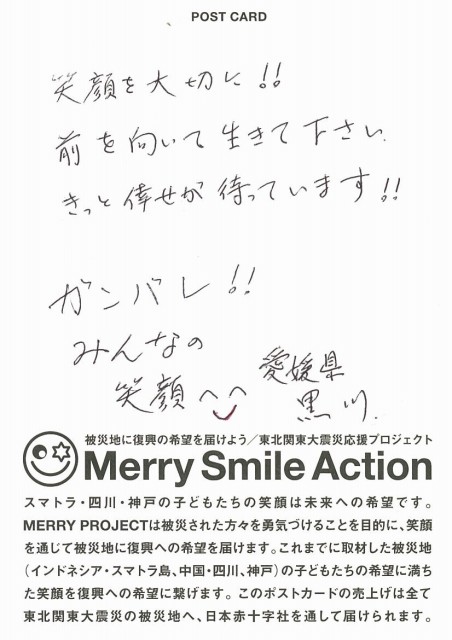 POST CARD
笑顔を大切に!!
前を向いて生きて下さい.
きっと倖せが待っています!!
ガンバレ!!
みんなの
笑顔へへ
愛媛県
黒川.
被災地に復興の希望を届けよう/東北関東大震災応援プロジェクト
Merry Smile Action
スマトラ・四川・神戸の子どもたちの笑顔は未来への希望です。
MERRY PROJECTは被災された方々を勇気づけることを目的に、笑顔
を通じて被災地に復興への希望を届けます。これまでに取材した被災地
(インドネシア・スマトラ島、中国・四川、神戸)の子どもたちの希望に満ち
た笑顔を復興への希望に繋げます。このポストカードの売上げは全て
東北関東大震災の被災地へ、日本赤十字社を通して届けられます。